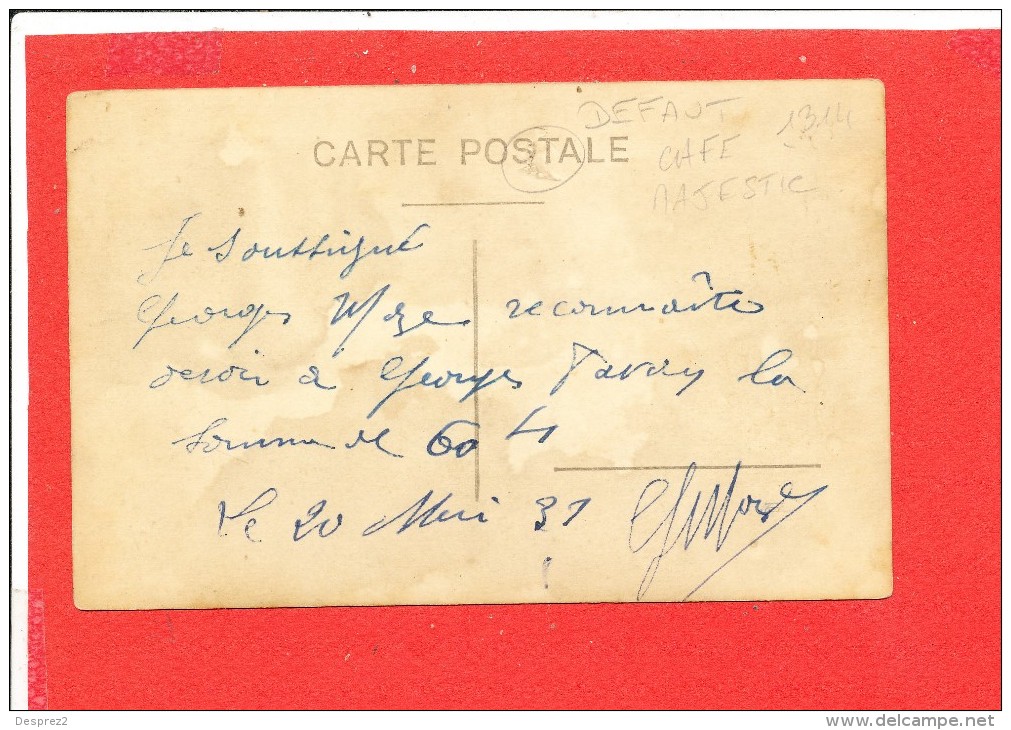 DEFAUT 1314
CARTE POSTALE
CAFE
MAJESTIC
Je soussigné
Georges reconnaître
devoir à Georges la
somme de 60 f
Le 20 Mai 31
Desprez2
www.delcampe.net